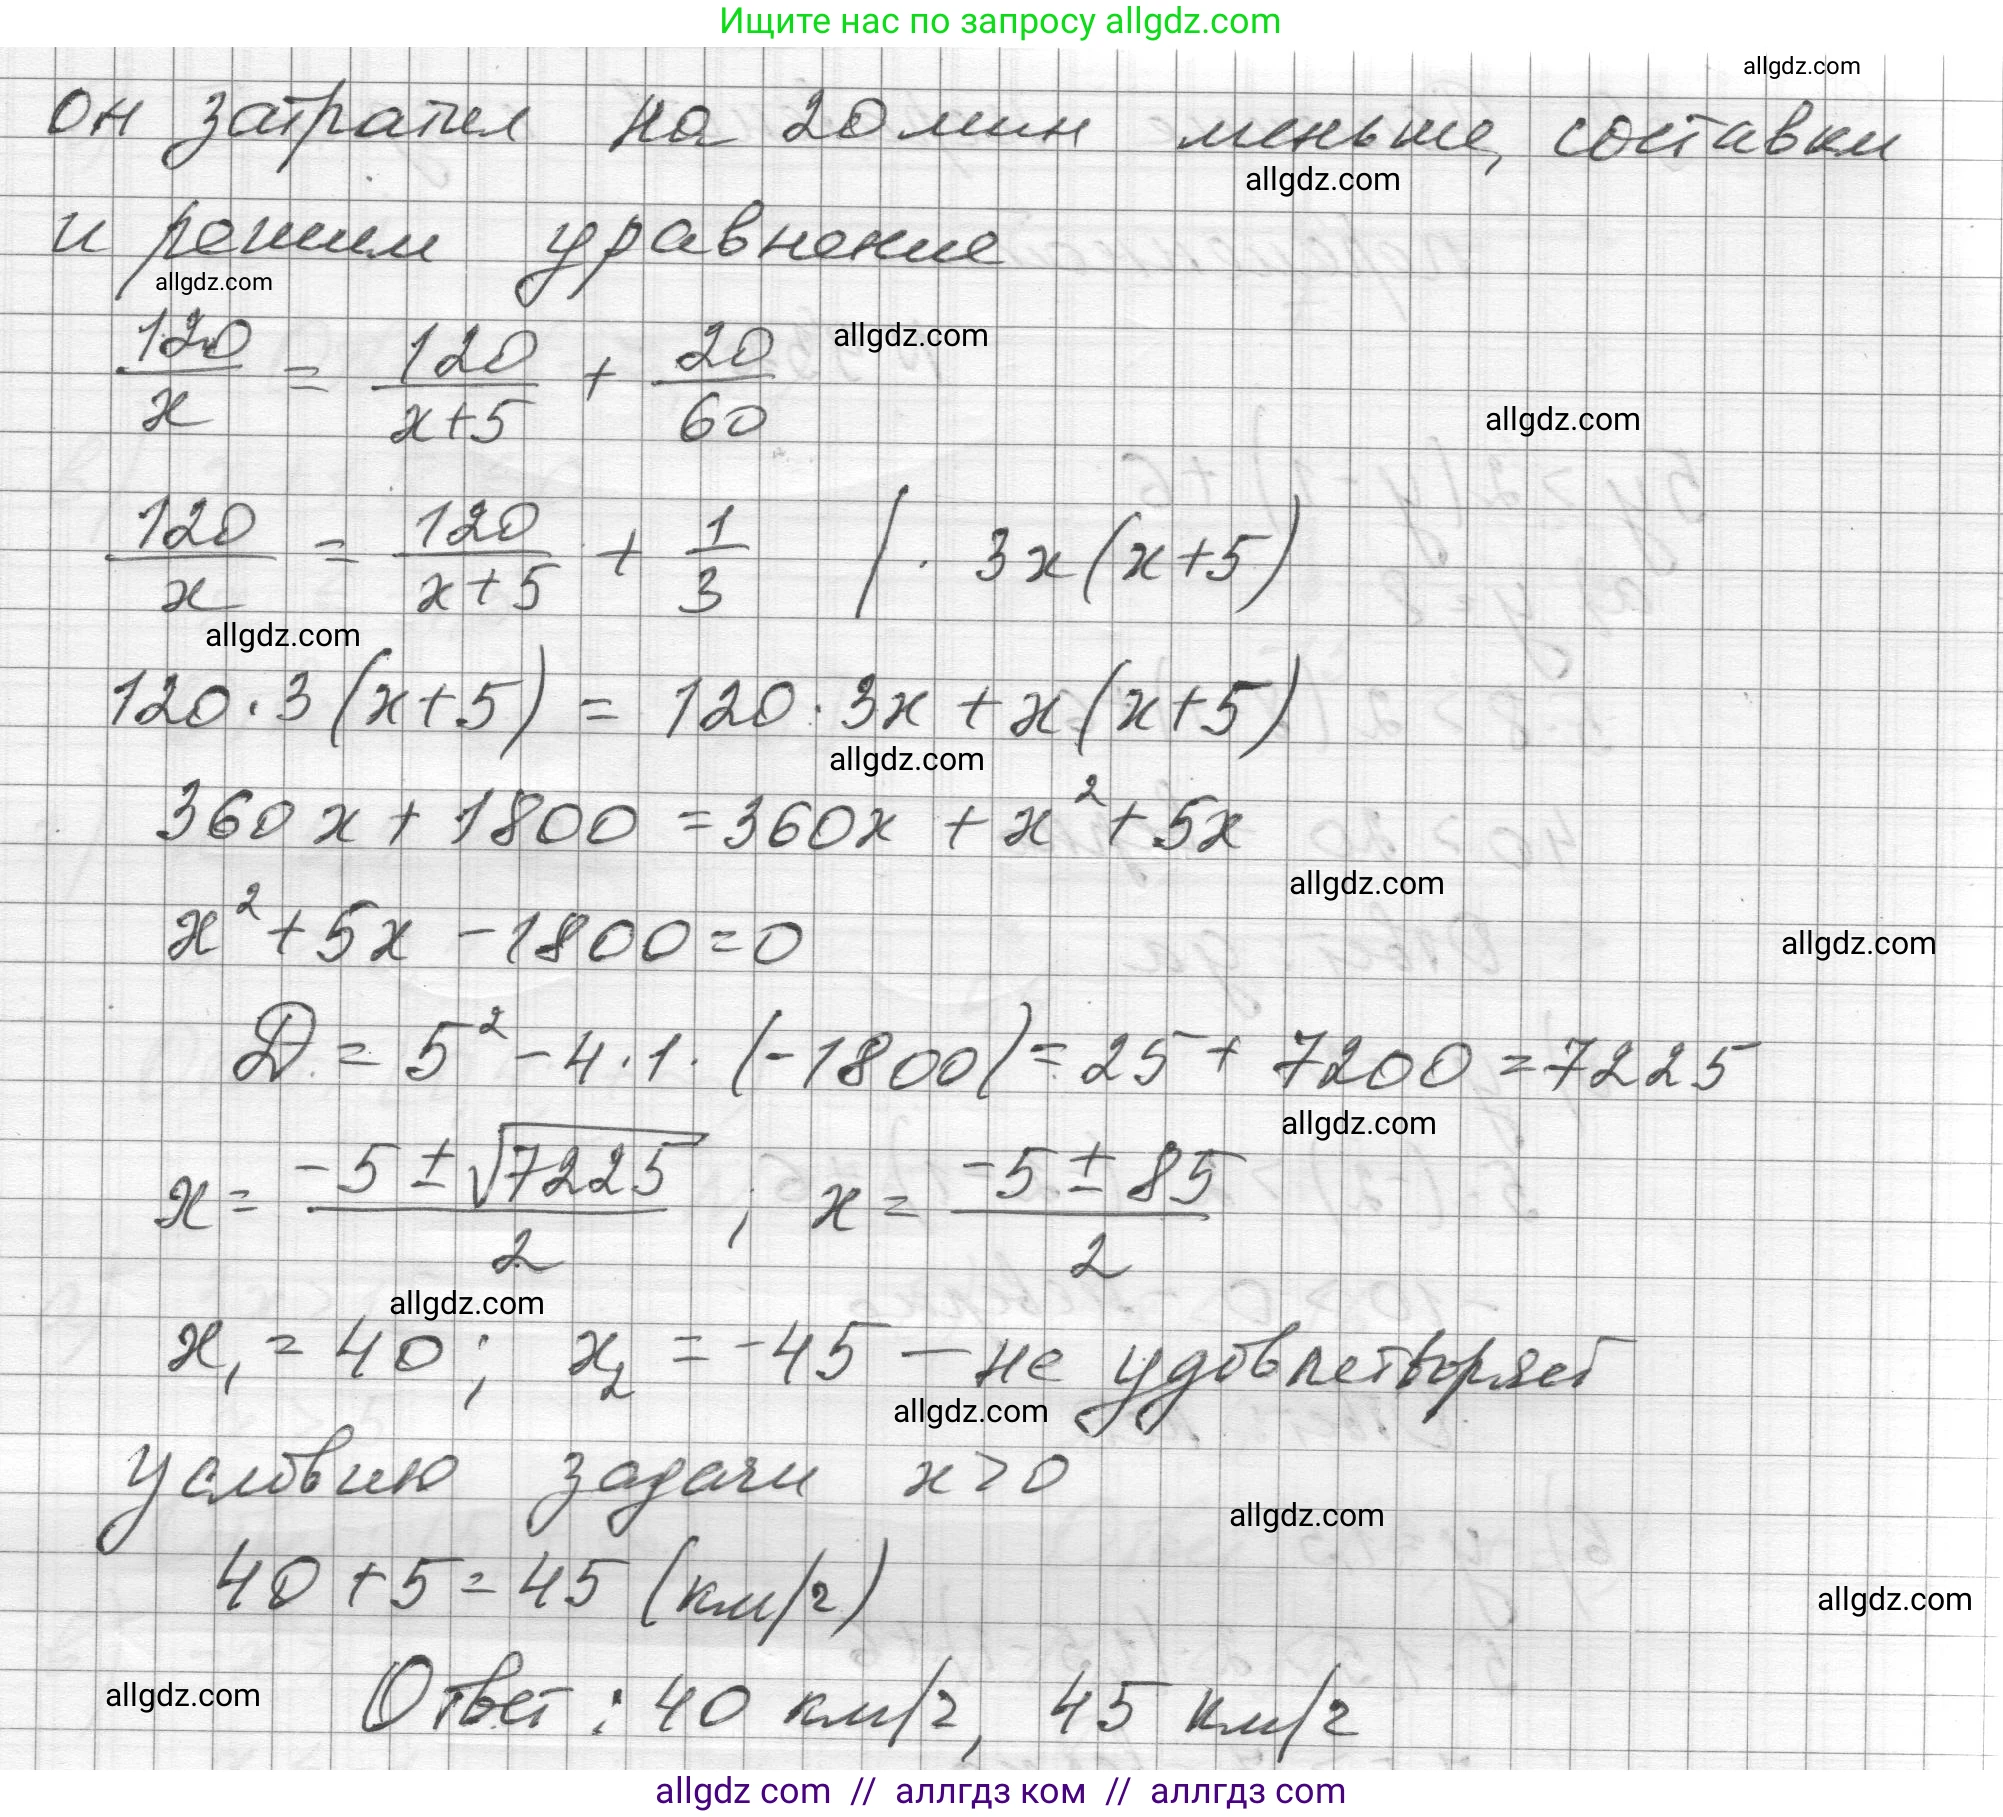 Ищите нас по запросу allgdz.com
allgdz.com
он затратил на 20 мин меньше, составим
allgdz.com
и решим уравнение
allgdz.com
120/x = 120/(x+5) + 20/60
allgdz.com
allgdz.com
120/x = 120/(x+5) + 1/3 | · 3x(x+5)
allgdz.com
120·3(x+5) = 120·3x + x(x+5)
allgdz.com
360x + 1800 = 360x + x² + 5x
allgdz.com
x² + 5x - 1800 = 0
allgdz.com
D = 5² - 4·1·(-1800) = 25 + 7200 = 7225
allgdz.com
x = (-5 ± √7225)/2 ; x = (-5 ± 85)/2
allgdz.com
x₁ = 40; x₂ = -45 — не удовлетворяет
allgdz.com
условию задачи x > 0
allgdz.com
40 + 5 = 45 (км/ч)
allgdz.com
allgdz.com
Ответ: 40 км/ч, 45 км/ч
allgdz com // аллгдз ком // аллгдз com